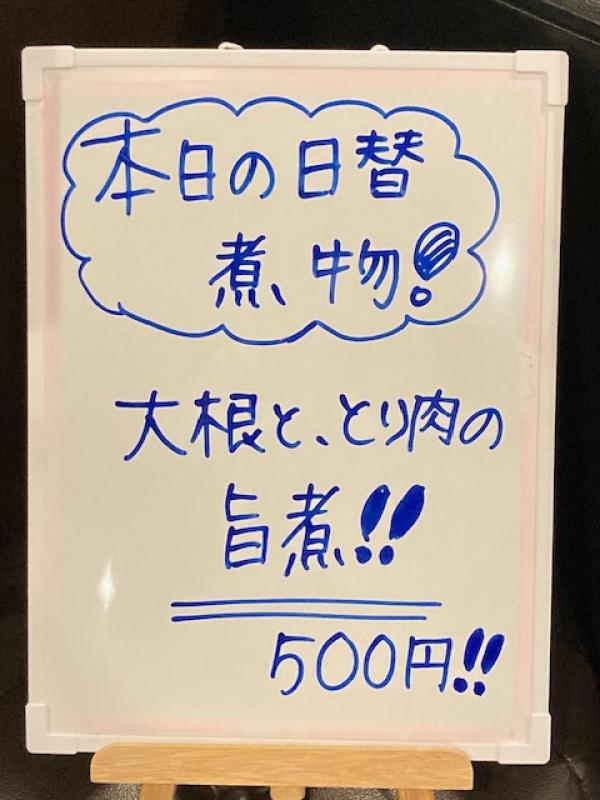 本日の日替
煮物!
大根と、とり肉の
旨煮!!
500円!!